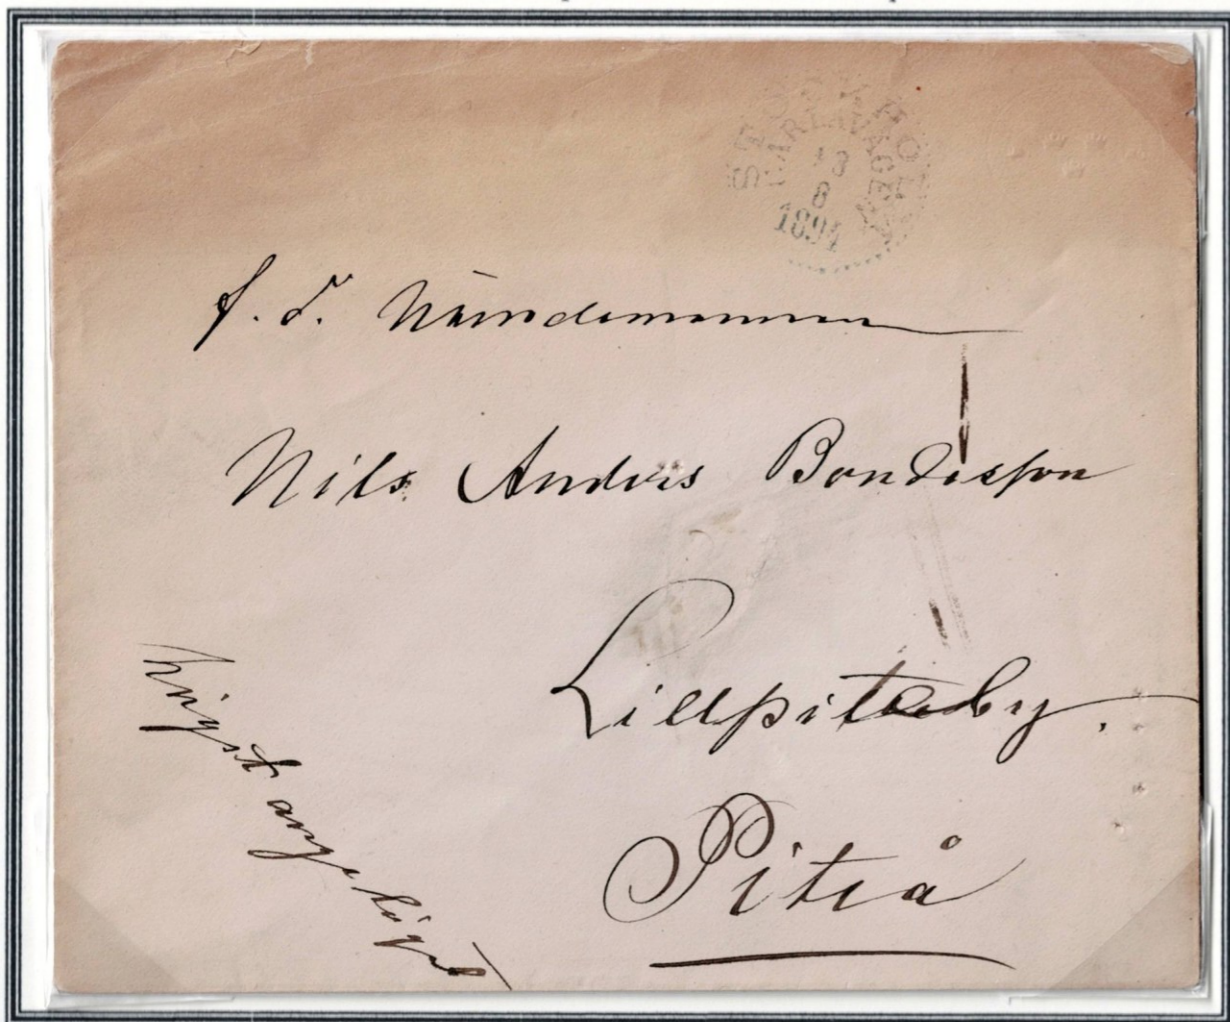 STOCKHOLM
KARLAVÄGEN
13
8
1894
f. d. Nämndemannen
Nils Anders Bondesson
Lillpiteby.
Piteå
högst angeläget